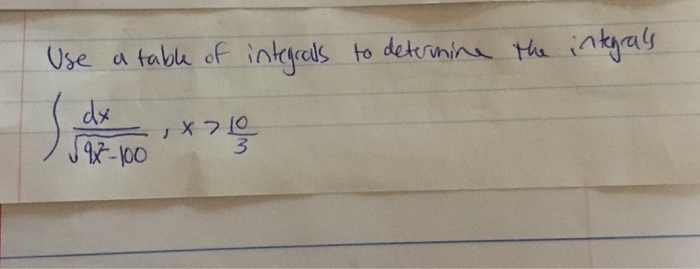 Use a table of integrals to determine the integrals
∫ dx / √(9x²-100) , x > 10/3